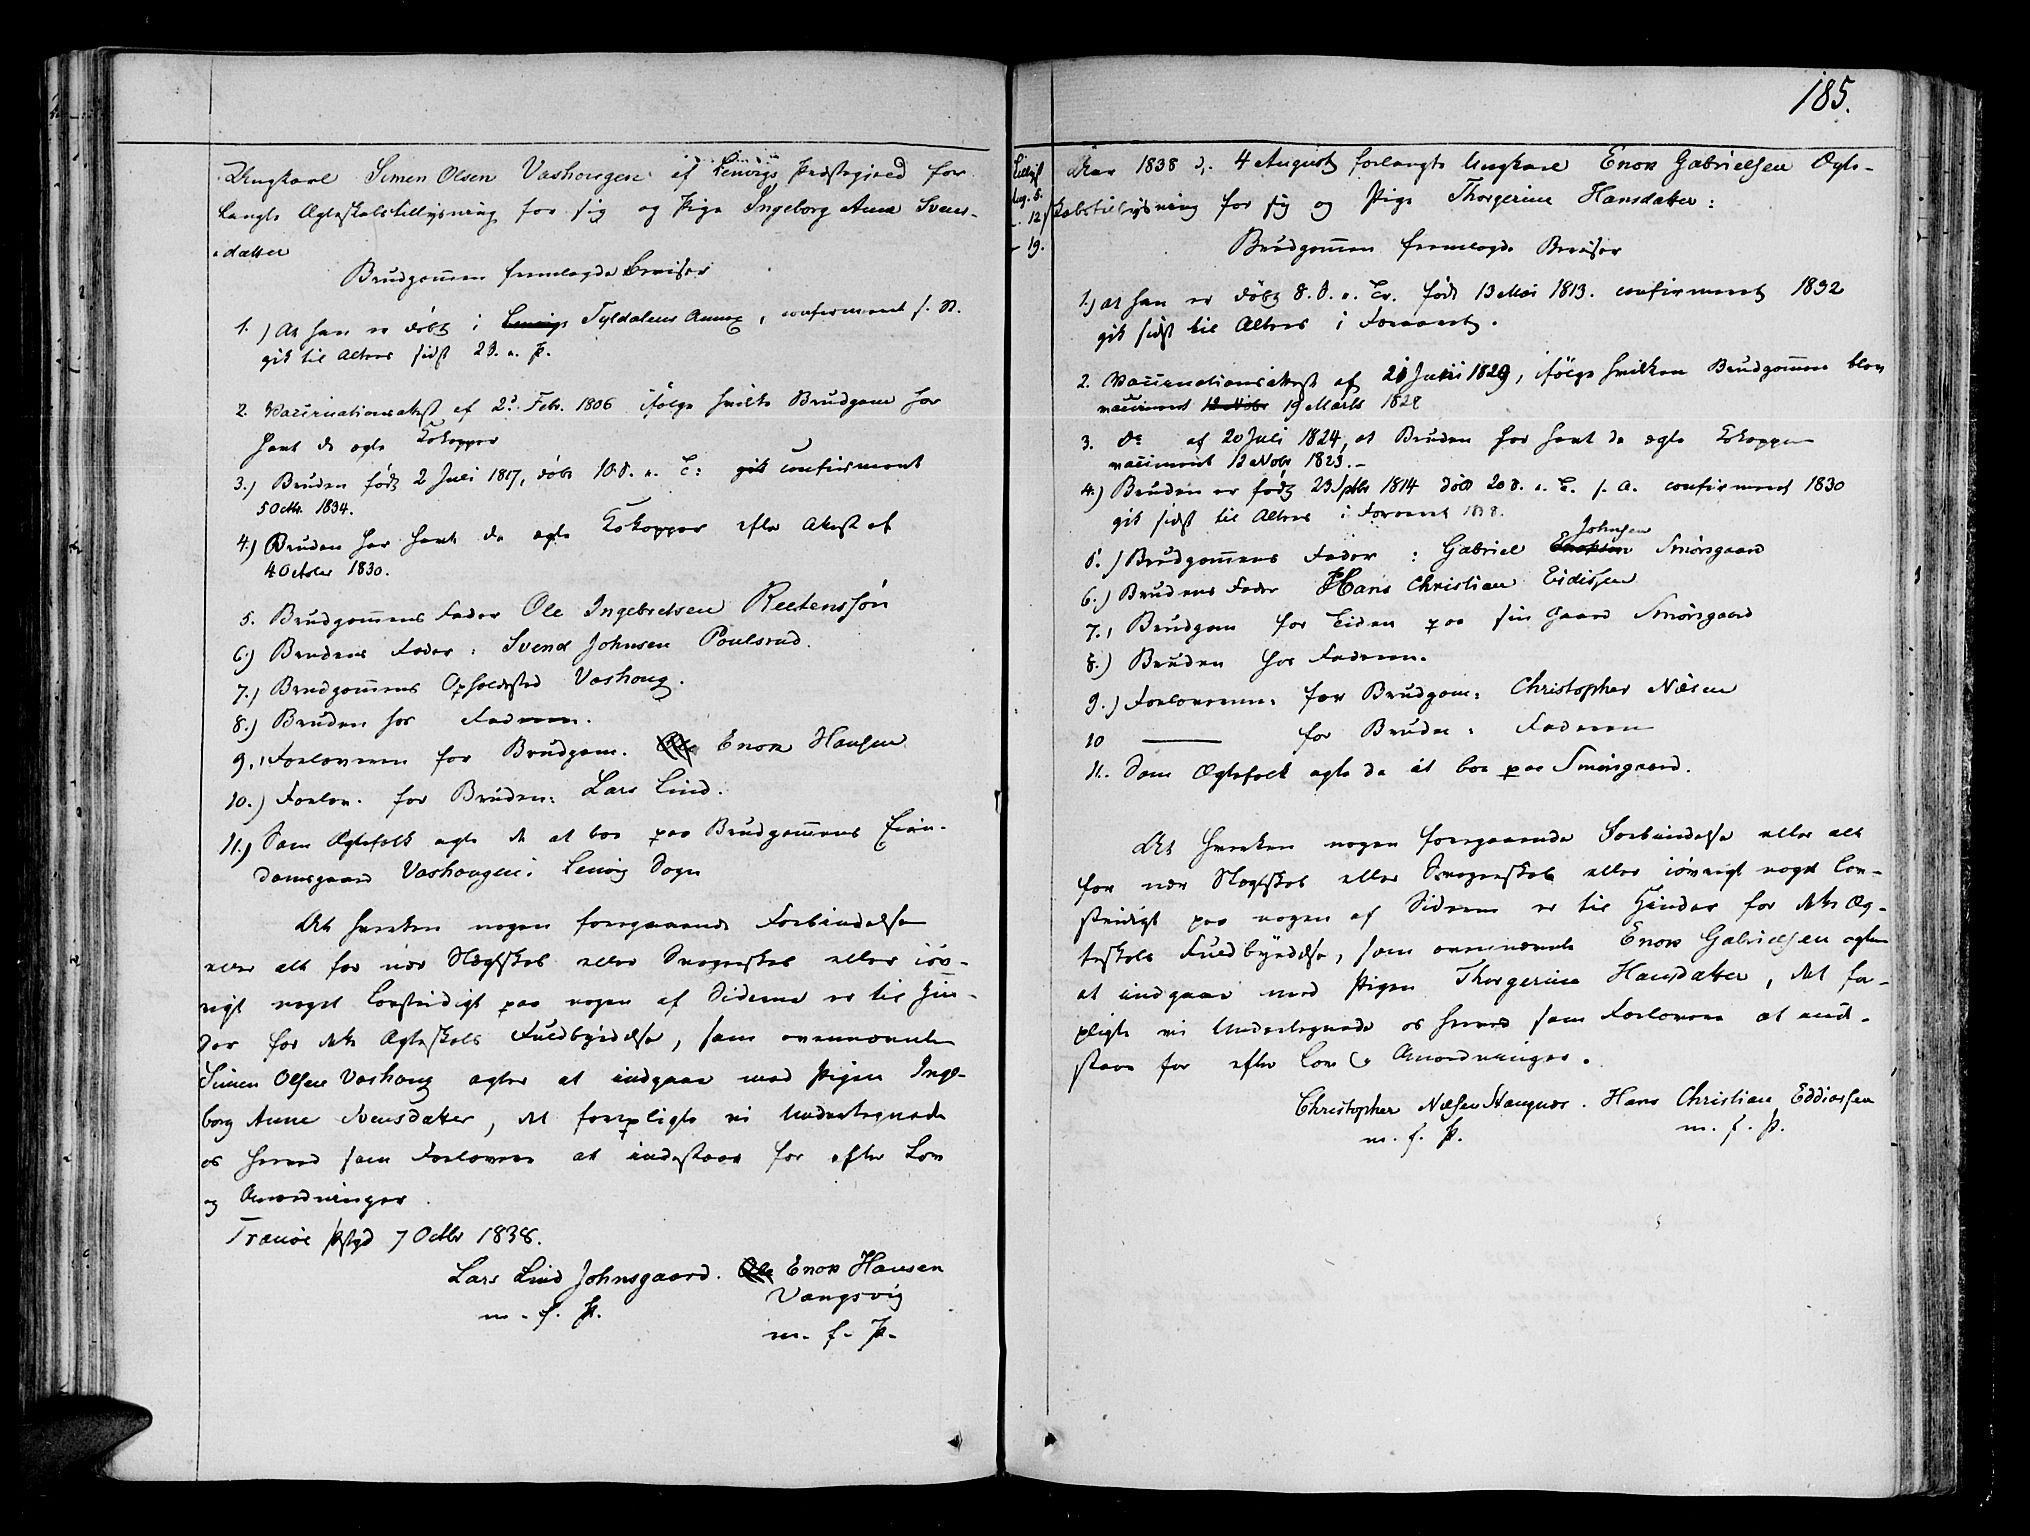 Ungkarl Simen Olsen Vashougen af Lenvigs Præstegield for-
langte Ægteskabstillysning for sig og Pige Ingeborg Anna Svens-
datter
Brudgommen fremlagde Beviser
1.) At han er døbt i Lenvigs Tyldalens Annex, confirmeret s. St.
gik til Alters sidst 23. e. p.
2. Vaccinationsattest af 2d Febr. 1806 ifølge hvilke Brudgom har
havt de ægte Kokopper
3.) Bruden født 2 Juli 1817, døbt 10 S. e. T: gik confirmeret
5 Octbr. 1834.
4.) Bruden har havt de ægte Kokopper efter Attest af
4 October 1830.
5. Brudgommens Fader Ole Ingebretsen
6.) Brudens Fader: Svend Johnsen Poulsrud.
7.) Brudgommens Opholdsted Vashoug.
8.) Bruden hos Faderen.
9.) Forloveren for Brudgom. Ole Enok Hansen
10.) Forlov. for Bruden: Lars Lind.
11.) Som Ægtefolk agte de at boe paa Brudgommens Eien-
domsgaard Vashougen i Lenvig Sogn
At hverken nogen foregaaende Forbindelse
eller alt for nær Slægtskab eller Svogerskab eller iøv-
rigt noget lovstridigt paa nogen af Siderne er til Hin-
der for dette Ægteskabs Fuldbyrdelse, som ovennævnte
Simen Olsen Vashoug agter at indgaae med Pigen Inge-
borg Anne Svensdatter, det forpligte vi Undertegnede
os herved som Forlovere at indestaae for efter Lov
og Anordninger.
Tranøe Pstgd 7 Octbr 1838.
Lars Lind Johnsgaard. Ole Enok Hansen
Vangsvig
m. f. P.
m. f. P.
185.
Tillyst
Aug. 5.
- 12
- 19.
Aar 1838 d. 4 August forlangte Ungkarl Enok Gabrielsen Ægte-
skabstillysning for sig og Pige Thorgerine Hansdatter:
Brudgommen fremlagde Beviser
1.) at han er døbt 8. S. e. Tr. født 13 Mai 1813. confirmeret 1832
gik sidst til Alters i Foraaret.
2. Vaccinationsattest af 21 Juli 1829, ifølge hvilken Brudgommen blev
vaccineret 12 Nobr 19 Marts 1828
3. do af 20 Juli 1824, at Bruden har havt de ægte Kokopper
vaccineret 12 Nobr 1823.-
4.) Bruden er født 23 Sptbr 1814 døbt 20 S. e. T. s. A. confirmeret 1830
gik sidst til Alters i Foraaret 1838.
5.) Brudgommens Fader: Gabriel Enoksen Johnsen Smørsgaard
6.) Brudens Fader Hans Christian Eidissen
7.) Brudgom for Tiden paa sin Gaard Smørsgaard
8.) Bruden hos Faderen.
9.) Forloverne: for Brudgom: Christopher Nilsen
10 — for Bruden: Faderen
11. Som Ægtefolk agte de at boe paa Smørsgaard.
At hverken nogen foregaaende Forbindelse eller alt
for nær Slægtskab eller Svogerskab eller iøvrigt noget lov-
stridigt paa nogen af Siderne er til Hinder for dette Æg-
teskabs Fuldbyrdelse, som ovennævnte Enok Gabrielsen agter
at indgaae med Pigen Thorgerine Hansdatter, det for-
pligte vi Undertegnede os herved som Forlovere at inde-
staae for efter Lov og Anordninger.
Christopher Nilsen Stangnæs. Hans Christian Eddiassen
m. f. P. m. f. P.